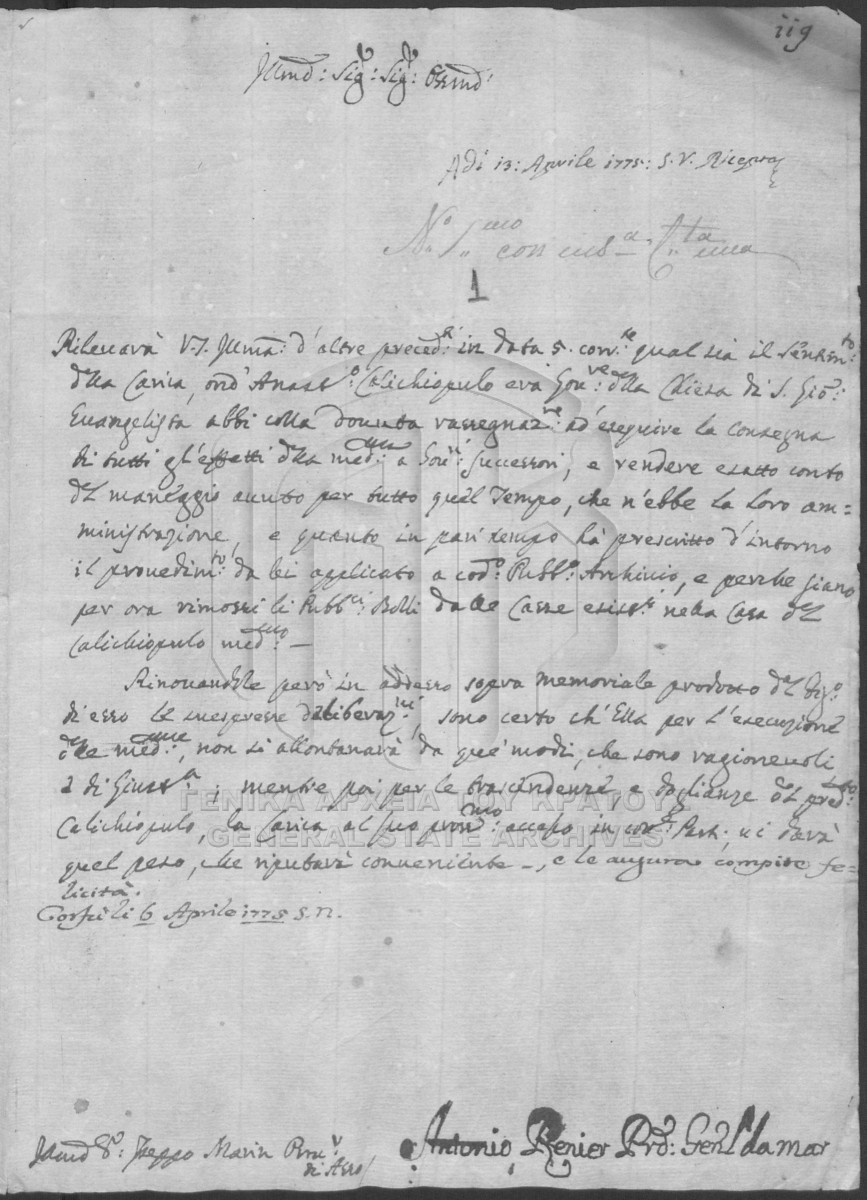 119
Illmo: Sig: Sig: Ossmo
Adi 13: Aprile 1775: S. V. Ricepra
N.o 1mo con
1
Rilevarà V. S. Illma: d'altre preced.ti in data 5. corr.te qual sia il sentim.to
della Carica, ond' Anast.o Calichiopulo era Gov.re della Chiesa di S. Gio:
Evangelista abbi colla dovuta rassegnaz.ne ad' eseguire la consegna
di tutti gl'effetti della med.ma a Gov.ri successori, e rendere esatto conto
del maneggio avuto per tutto quel Tempo, che n'ebbe la loro am=
ministrazione, e quanto in pari tempo hà prescritto d'intorno
il provedim.to da lei applicato a cod.o Pubb.o Archivio, e perche siano
per ora rimossi li Pubb.ci Bolli dalle Casse esist.ti nella Casa del
Calichiopulo med.mo —
Rinovandole però in adesso sopra memoriale prodotto dal Fig.o
di esso le inespresse deliberaz.ni, sono certo ch'Ella per l'esecuzione
delle med.me, non si allontanarà da que' modi, che sono ragionevoli
e di Giust.a; mentre poi per le trascendenze e doglianze del pred.to
Calichiopulo, la Carica al suo pross.mo accesso in cod.e Parti, vi darà
quel peso, che riputarà conveniente —, e le auguro compite fe=
licità.
Corfù li 6 Aprile 1775 S. N.
Illmo S.r: Zeppo Marin Prov.r
di Asso
Antonio Renier Prov: Gen'l da mar
ΓΕΝΙΚΑ ΑΡΧΕΙΑ ΤΟΥ ΚΡΑΤΟΥΣ
GENERAL STATE ARCHIVES